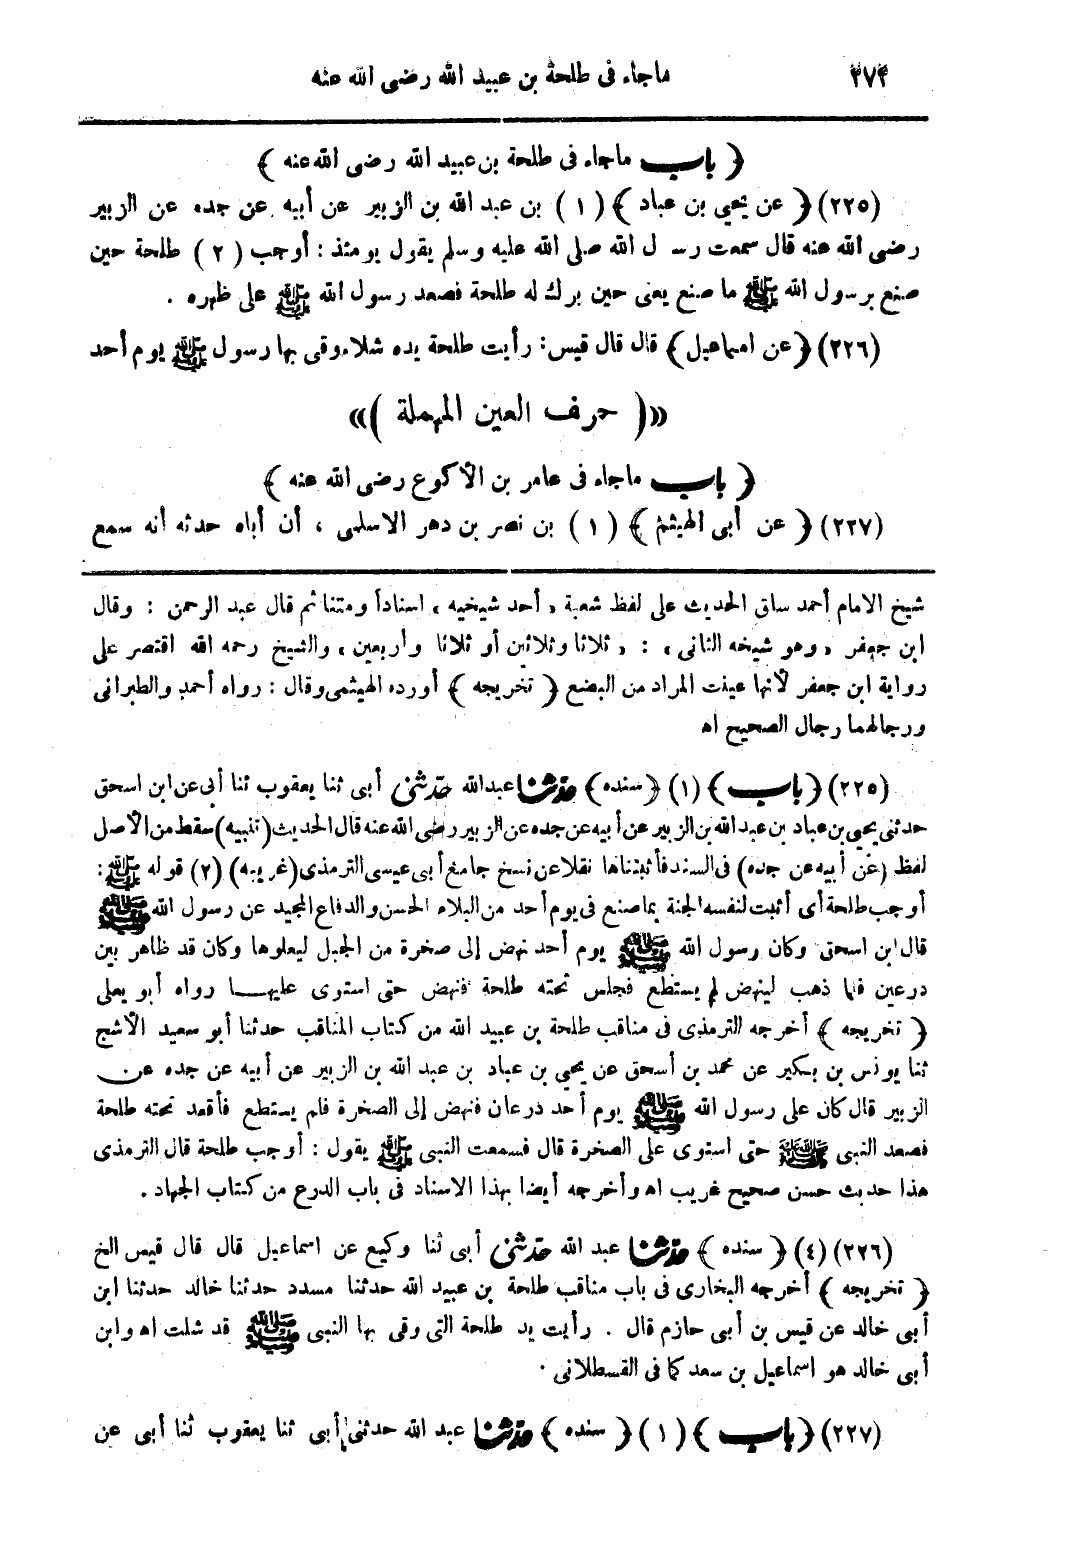 ٣٧٣ ماجاء فى طلحة بن عبيد الله رضى الله عنه
﴿ باب ماجاء فى طلحة بن عبيد الله رضى الله عنه ﴾
(٢٢٥) ﴿ عن يحيى بن عباد ﴾ ( ١ ) بن عبد الله بن الزبير عن أبيه عن جده عن الزبير
رضى الله عنه قال سمعت رسول الله صلى الله عليه وسلم يقول يومئذ : أوجب ( ٢ ) طلحة حين
صنع برسول الله ﷺ ما صنع يعنى حين برك له طلحة فصعد رسول الله ﷺ على ظهره .
(٢٢٦) ﴿ عن اسماعيل ﴾ قال قال قيس : رأيت طلحة يده شلاء وقى بها رسول ﷺ يوم أحد
«( حرف العين المهملة )»
﴿ باب ماجاء فى عامر بن الأكوع رضى الله عنه ﴾
(٢٢٧) ﴿ عن أبى الهيثم ﴾ ( ١ ) بن نصر بن دهر الاسلمى ، أن أباه حدثه أنه سمع
شيخ الامام أحمد ساق الحديث على لفظ شعبة ، أحد شيخيه ، اسناداً ومتنا ثم قال عبد الرحمن : وقال
ابن جعفر ، وهو شيخه الثانى ، : ، ثلاثا وثلاثين أو ثلاثا وأربعين ، والشيخ رحمه الله اقتصر على
رواية ابن جعفر لأنها عينت المراد من البضع ﴿ تخريجه ﴾ أورده الهيثمى وقال : رواه أحمد والطبرانى
ورجالهما رجال الصحيح اه
(٢٢٥) ﴿ باب ﴾ (١) ﴿ سنده ﴾ حدثنا عبد الله حدثنى أبى ثنا يعقوب ثنا أبى عن ابن اسحق
حدثنى يحيى بن عباد بن عبد الله بن الزبير عن أبيه عن جده عن الزبير رضى الله عنه قال الحديث (تنبيه) سقط من الأصل
لفظ (عن أبيه عن جده) فى السند فأثبتناها نقلا عن نسخ جامع أبى عيسى الترمذى (غريبه) (٢) قوله ﷺ :
أوجب طلحة أى أثبت لنفسه الجنة بما صنع فى يوم أحد من البلاء الحسن والدفاع المجيد عن رسول الله ﷺ
قال ابن اسحق وكان رسول الله ﷺ يوم أحد نهض إلى صخرة من الجبل ليعلوها وكان قد ظاهر بين
درعين فلما ذهب لينهض لم يستطع فجلس تحته طلحة فنهض حتى استوى عليها رواه أبو يعلى
﴿ تخريجه ﴾ أخرجه الترمذى فى مناقب طلحة بن عبيد الله من كتاب المناقب حدثنا أبو سعيد الأشج
ثنا يونس بن بكير عن محمد بن أسحق عن يحيى بن عباد بن عبد الله بن الزبير عن أبيه عن جده عن
الزبير قال كان على رسول الله ﷺ يوم أحد درعان فنهض إلى الصخرة فلم يستطع فأقعد تحته طلحة
فصعد النبى ﷺ حتى استوى على الصخرة قال فسمعت النبى ﷺ يقول : أوجب طلحة قال الترمذى
هذا حديث حسن صحيح غريب اه وأخرجه أيضا بهذا الاسناد فى باب الدرع من كتاب الجهاد .
(٢٢٦) (٤) ﴿ سنده ﴾ حدثنا عبد الله حدثنى أبى ثنا وكيع عن اسماعيل قال قال قيس الخ
﴿ تخريجه ﴾ أخرجه البخارى فى باب مناقب طلحة بن عبيد الله حدثنا مسدد حدثنا خالد حدثنا ابن
أبى خالد عن قيس بن أبى حازم قال . رأيت يد طلحة التى وقى بها النبى ﷺ قد شلت اه وابن
أبى خالد هو اسماعيل بن سعد كما فى القسطلانى .
(٢٢٧) ﴿ باب ﴾ ( ١ ) ﴿ سنده ﴾ حدثنا عبد الله حدثنى أبى ثنا يعقوب ثنا أبى عن